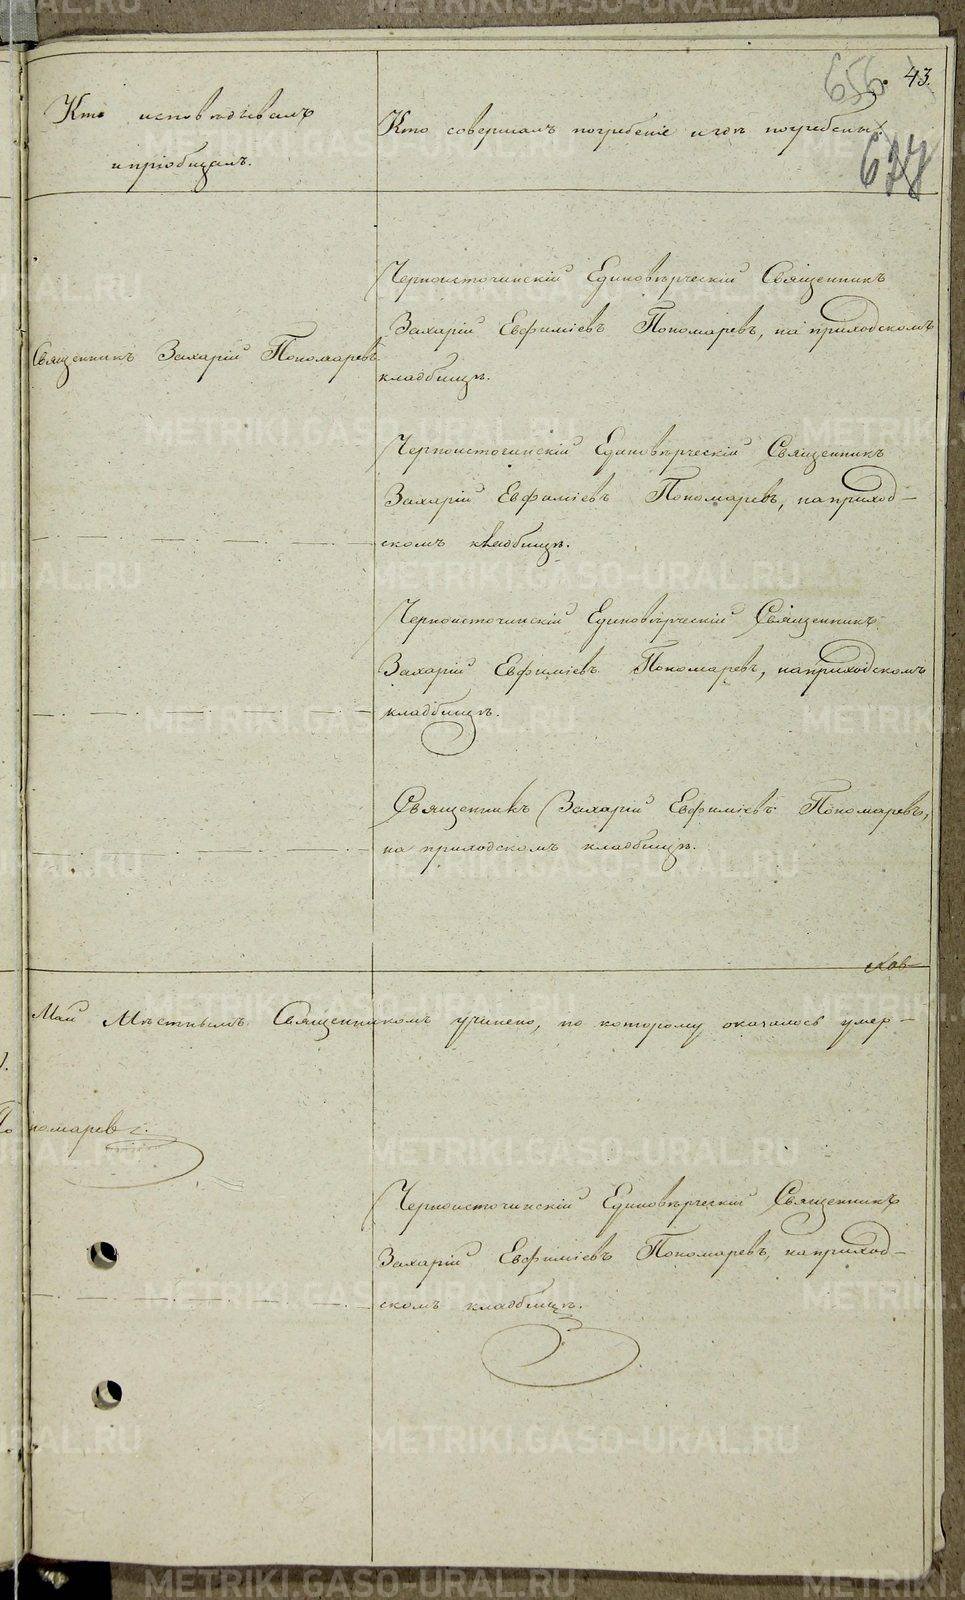 656. 43.
677
Кто исповѣдывалъ
и пріобщалъ.
Кто совершалъ погребеніе и гдѣ погребены.
Черноисточинскій Единовѣрческій Священникъ
Захарій Евфиміевъ Пономаревъ, на приходскомъ
кладбищѣ.
Священникъ Захарій Пономаревъ
Черноисточинскій Единовѣрческій Священникъ
Захарій Евфиміевъ Пономаревъ, на приход-
скомъ кладбищѣ.
Черноисточинскій Единовѣрческій Священникъ
Захарій Евфиміевъ Пономаревъ, на приходскомъ
кладбищѣ.
Священникъ Захарій Евфиміевъ Пономаревъ,
на приходскомъ кладбищѣ.
Май Мѣстнымъ Священникомъ учинено, по которому оказалось умер-
номаревъ.
Черноисточинскій Единовѣрческій Священникъ
Захарій Евфиміевъ Пономаревъ, на приход-
скомъ кладбищѣ.
METRIKI.GASO-URAL.RU